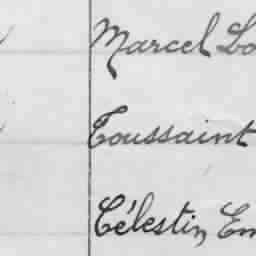 Marcel Lo
Toussaint
Célestin Em